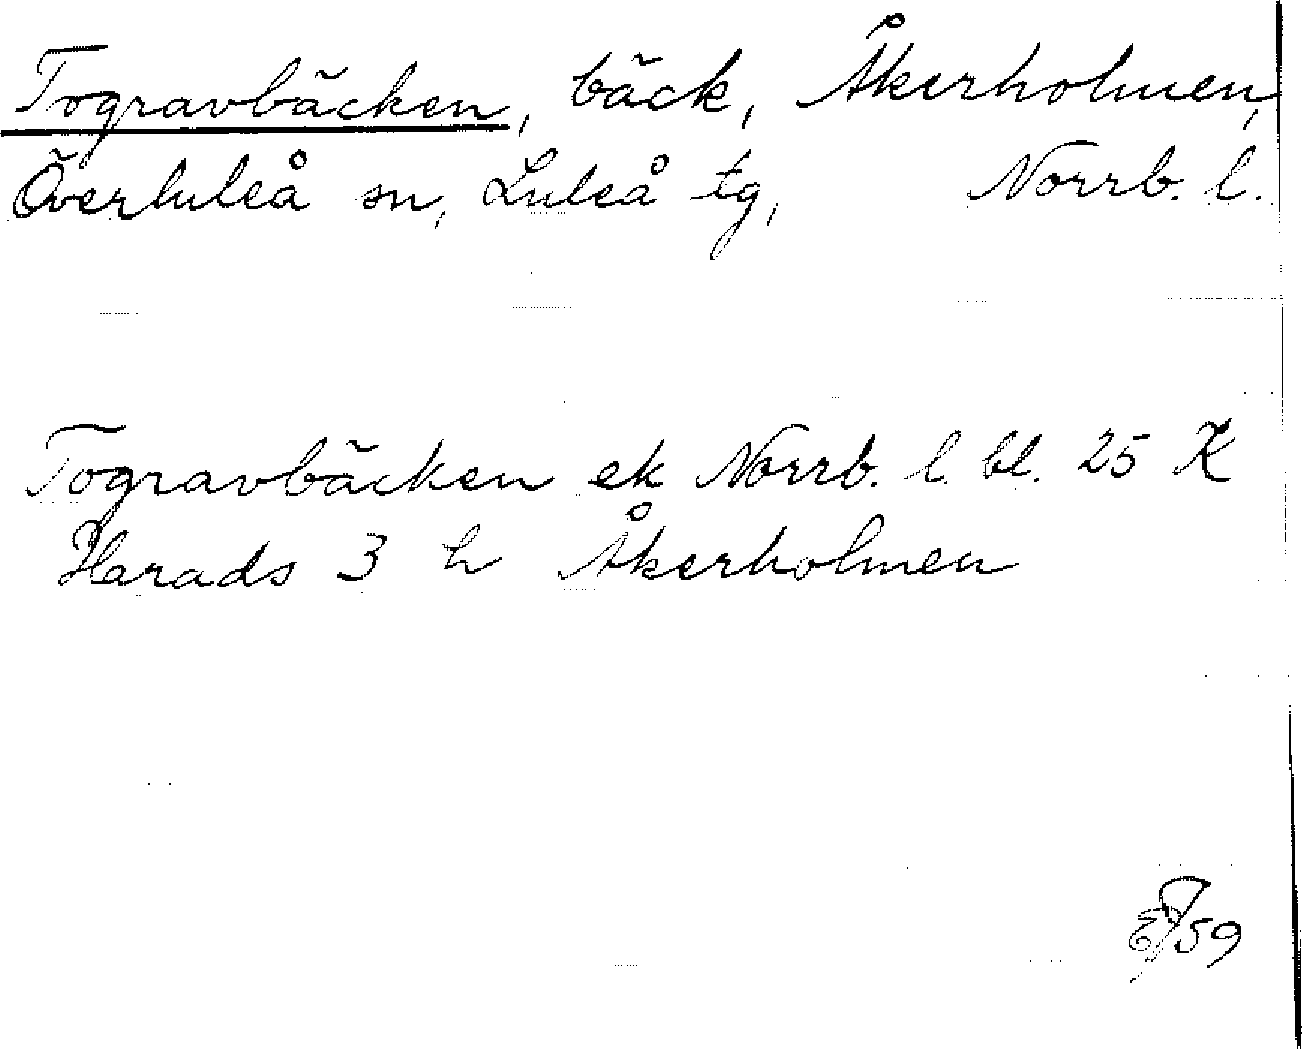 Togravbäcken, bäck, Åkerholmen,
Överluleå sn, Luleå tg, Norrb. l.
Togravbäcken ek Norrb. l. bl. 25 K
Harads 3 h Åkerholmen
59